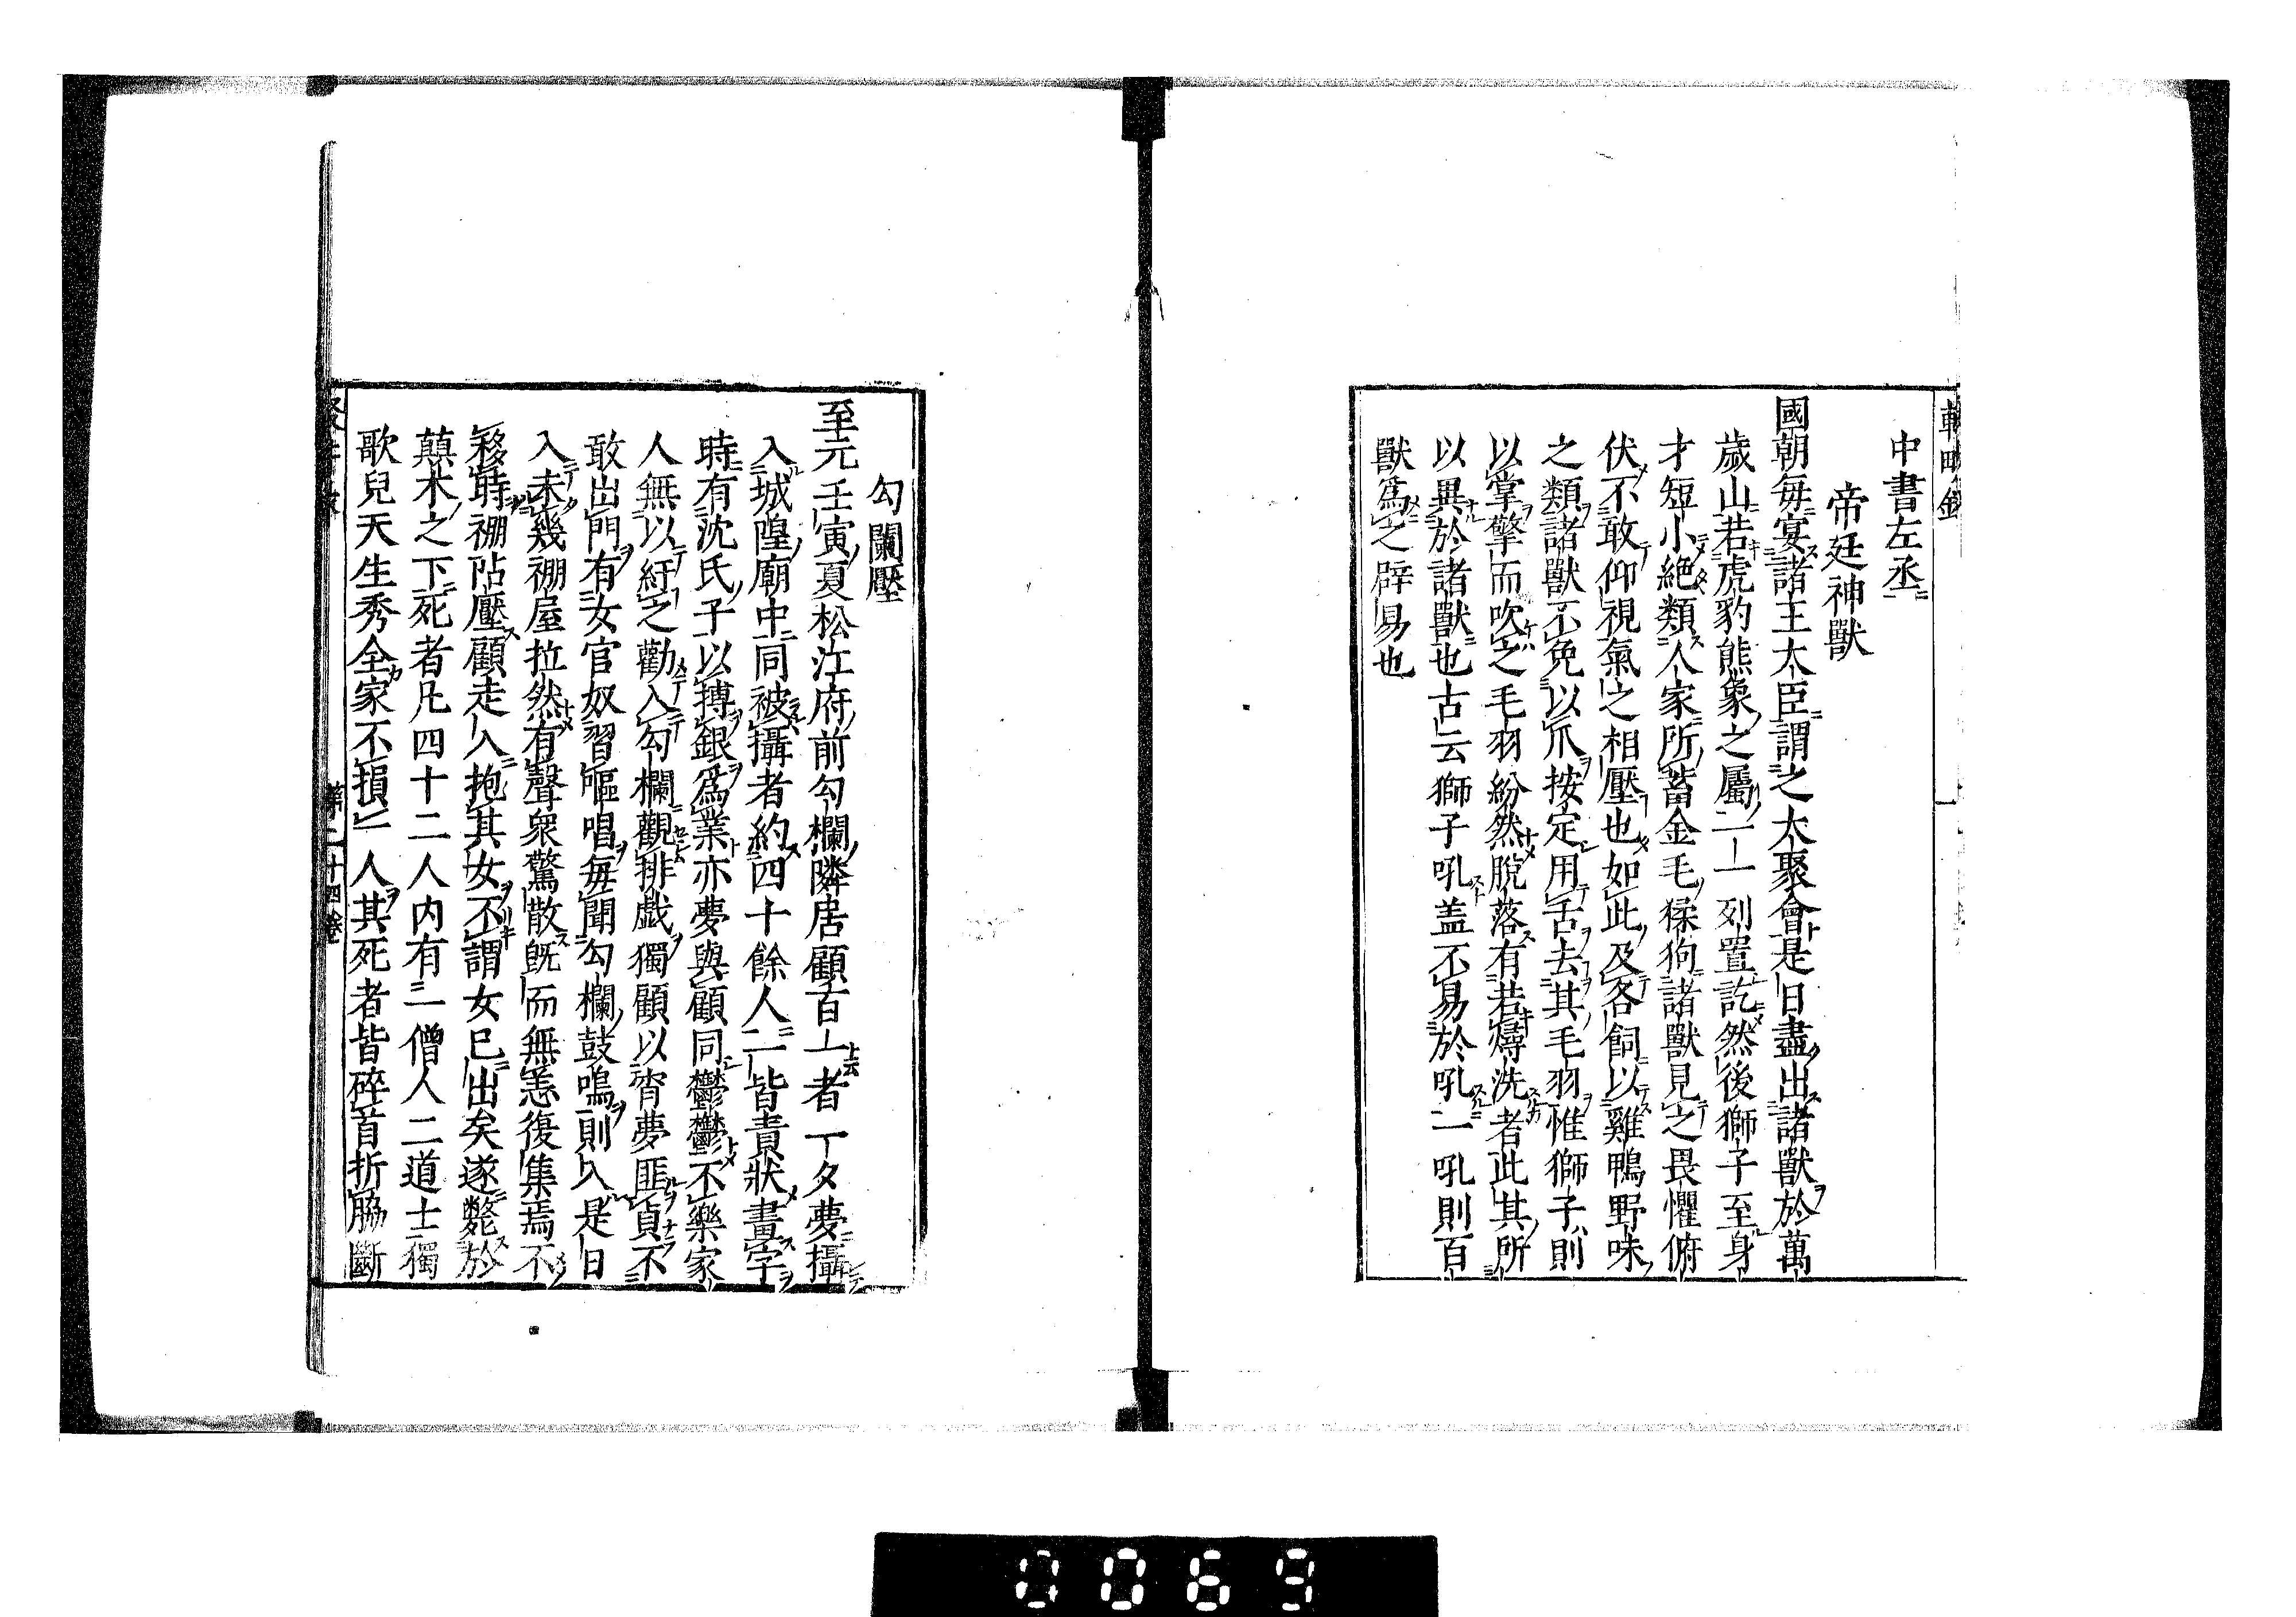 中書左丞
帝廷神獸
國朝每宴諸王大臣謂之大聚會是日盡出諸獸於萬
歲山若虎豹熊象之屬一一列置訖然後獅子至身
才短小絶類人家所蓄金毛猱狗諸獸見之畏懼俯
伏不敢仰視氣之相壓也如此及各飼以雞鴨野味
之類諸獸不免以爪按定用舌去其毛羽惟獅子則
以掌擎而吹之毛羽紛然脫落有若燖洗者此其所
以異於諸獸也古云獅子吼盖不易於吼一吼則百
獸爲之辟易也
勾闌壓
至元壬寅夏松江府前勾欄隣居顧百一者一夕夢攝
入城隍廟中同被攝者約四十餘人一一皆責狀畫字
時有沈氏子以搏銀爲業亦夢與顧同鬱鬱不樂家
人無以紓之勸入勾欄觀排戯獨顧以宵夢匪貞不
敢出門有女官奴習嘔唱每聞勾欄鼓鳴則入是日
入未幾棚屋拉然有聲衆驚散旣而無恙復集焉不
移時棚阽壓顧走入抱其女不謂女已出矣遂斃於
顛木之下死者凡四十二人內有一僧人二道士獨
歌兒天生秀全家不損一人其死者皆碎首折脇斷
第二十四卷